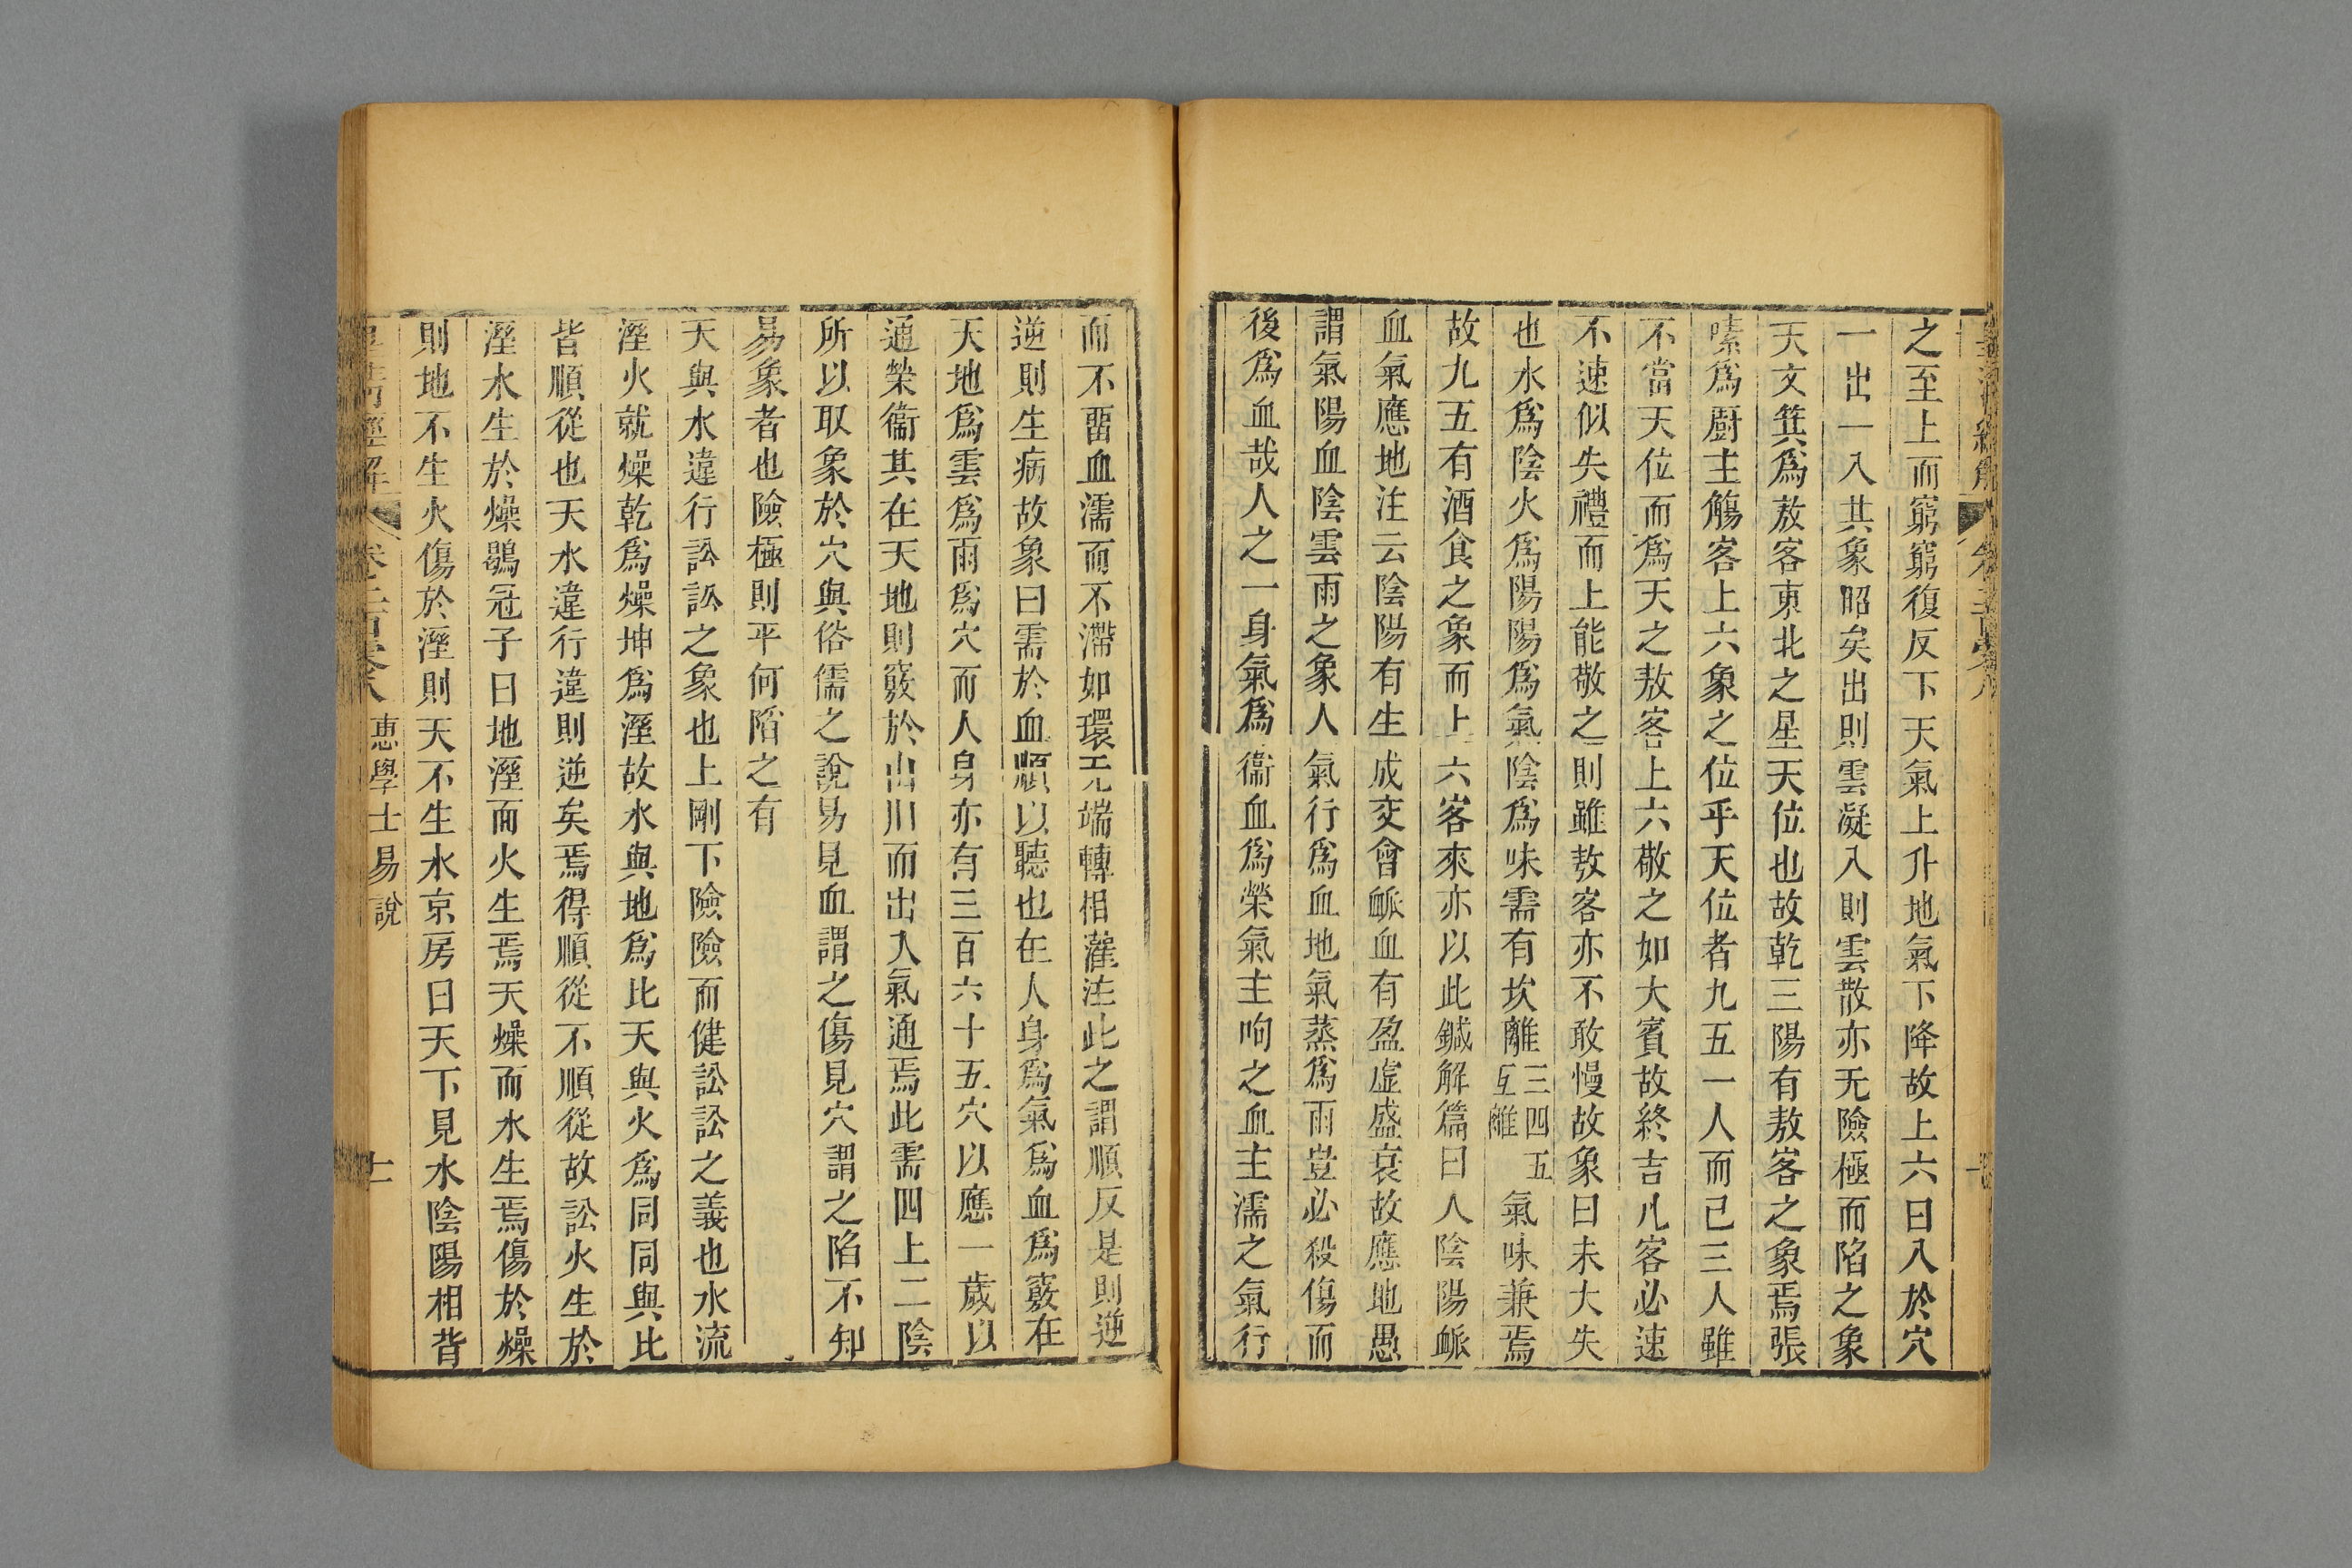 之至上而窮窮復反下天氣上升地氣下降故上六曰入於穴
一出一入其象昭矣出則雲凝入則雲散亦无險極而陷之象
天文箕爲敖客東北之星天位也故乾三陽有敖客之象焉張
嗉爲廚主觴客上六象之位乎天位者九五一人而已三人雖
不當天位而爲天之敖客上六敬之如大賓故終吉凡客必速
不速似失禮而上能敬之則雖敖客亦不敢慢故象曰未大失
也水爲陰火爲陽陽爲氣陰爲味需有坎離三四五互離氣味兼焉
故九五有酒食之象而上六客來亦以此鍼解篇曰人陰陽脈
血氣應地注云陰陽有生成交會脈血有盈虛盛衰故應地愚
謂氣陽血陰雲雨之象人氣行爲血地氣蒸爲雨豈必殺傷而
後爲血哉人之一身氣爲衞血爲榮氣主呴之血主濡之氣行
而不畱血濡而不滯如環无端轉相灌注此之謂順反是則逆
逆則生病故象曰需於血順以聽也在人身爲氣爲血爲竅在
天地爲雲爲雨爲穴而人身亦有三百六十五穴以應一歲以
通榮衞其在天地則竅於山川而出入氣通焉此需四上二陰
所以取象於穴與俗儒之說易見血謂之傷見穴謂之陷不知
易象者也險極則平何陷之有
天與水違行訟訟之象也上剛下險險而健訟訟之義也水流
溼火就燥乾爲燥坤爲溼故水與地爲比天與火爲同同與比
皆順從也天水違行違則逆矣焉得順從不順從故訟火生於
溼水生於燥鶡冠子曰地溼而火生焉天燥而水生焉傷於燥
則地不生火傷於溼則天不生水京房曰天下見水陰陽相背
皇淸經解 卷二百零八 惠學士易說 十一